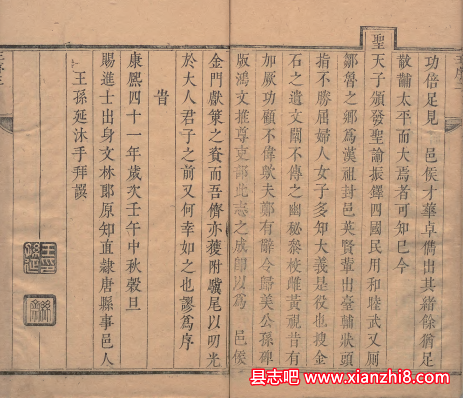 功倍足見　邑侯才華卓儁出其緒餘猶足
黻黼太平而大焉者可知已今
聖天子頒發聖諭振鐸四國民用和睦武又厠
鄒魯之鄉爲漢祖封邑英賢輩出臺輔狀頭
指不勝屈婦人女子多知大義是役也搜金
石之遺文闡不傳之幽秘校雌黃視昔有
加厥功顧不偉歟夫鄭有辭令歸美公孫碑
版鴻文推尊吏部此志之成歸以爲　邑侯
金門獻策之資而吾儕亦獲附驥尾以明光
於大人君子之前又何幸如之也謬爲序
旹
康熙四十一年歲次壬午中秋穀旦
賜進士出身文林郎原知直隸唐縣事邑人
王孫延沐手拜譔
县志吧 www.xianzhi8.com